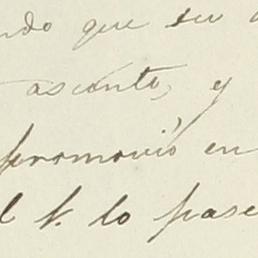 ndo que su
asiento, y
promovió en
l S. lo pase